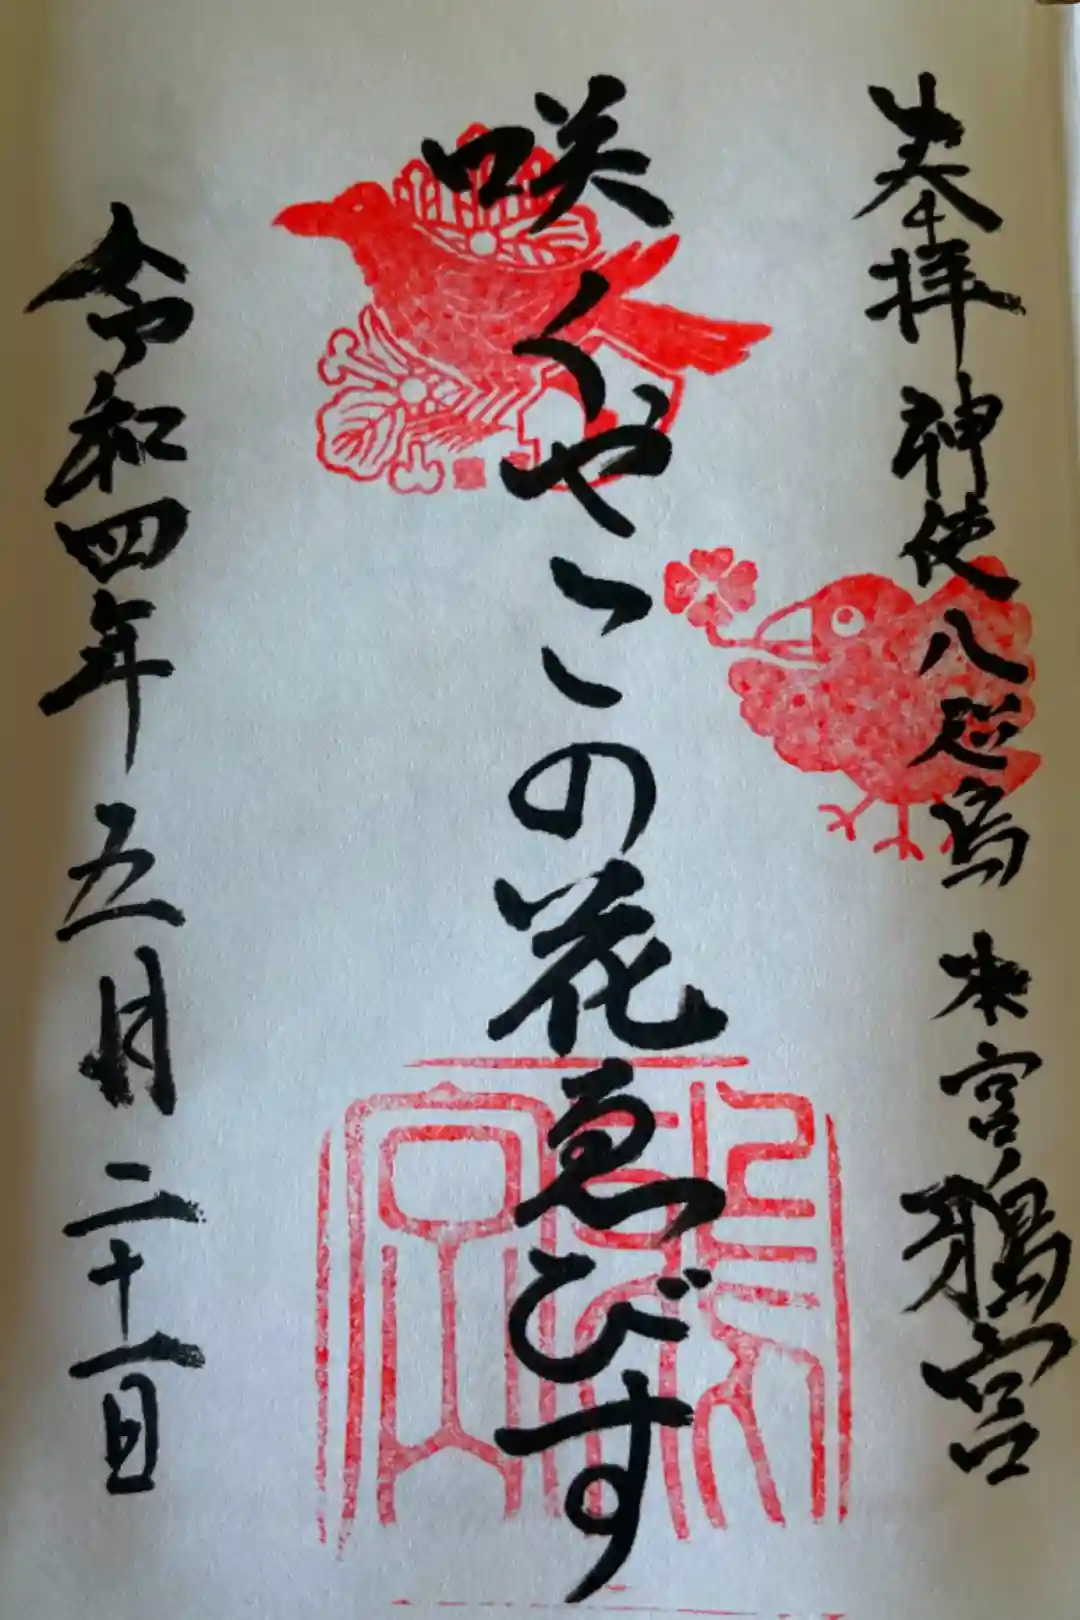 奉拝 神使八咫烏 本宮鵶宮
咲くやこの花ゑびす
令和四年五月二十一日